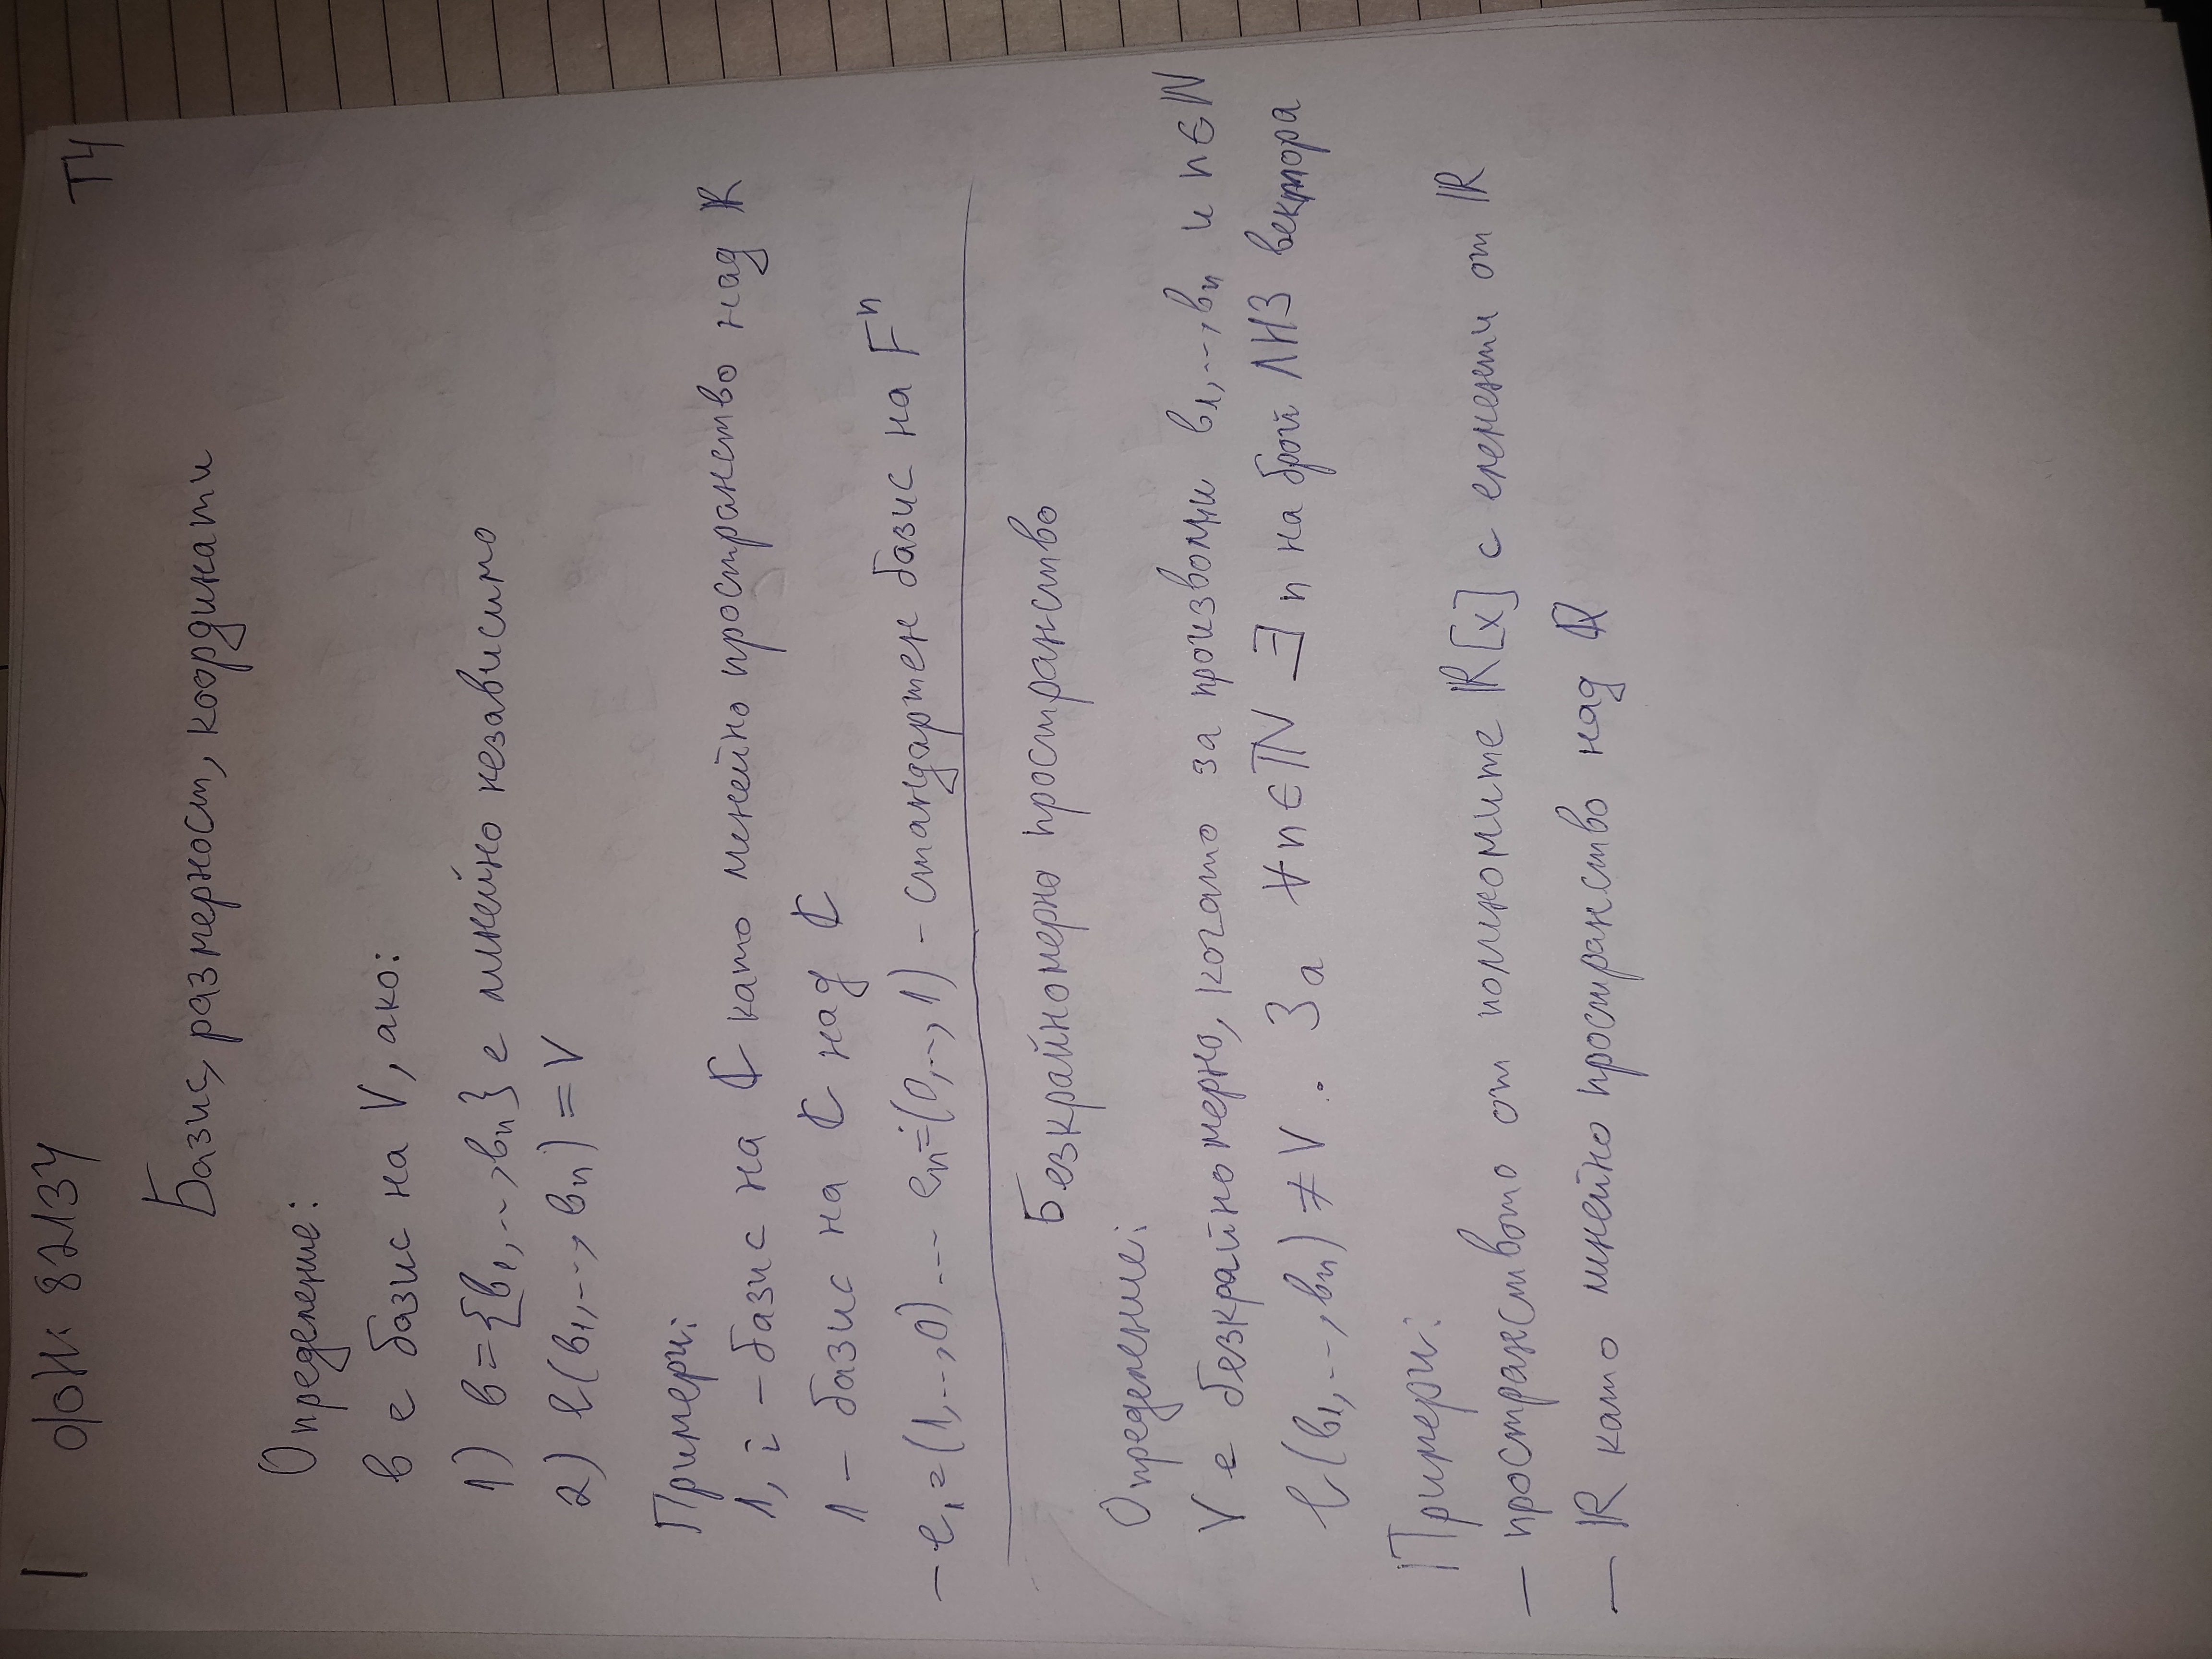 1 фН: 82134 T4
Базис, размерност, координати
Определение:
в е базис на V, ако:
1) в={в₁,..,вₙ} е линейно независимо
2) ℓ(в₁,...,вₙ) = V
Примери:
1, i – базис на ℂ като линейно пространство над ℝ
1 – базис на ℂ над ℂ
– e₁=(1,..,0)... eₙ=(0,..,1) – стандартен базис на Fⁿ
Безкрайномерно пространство
Определение:
V е безкрайномерно, когато за произволни в₁,..,вₙ и n∈ℕ
ℓ(в₁,...,вₙ) ≠ V. За ∀n∈ℕ ∃ n на брой ЛНЗ вектора
Примери:
– пространството от полиномите ℝ[x] с елементи от ℝ
– ℝ като линейно пространство над ℚ